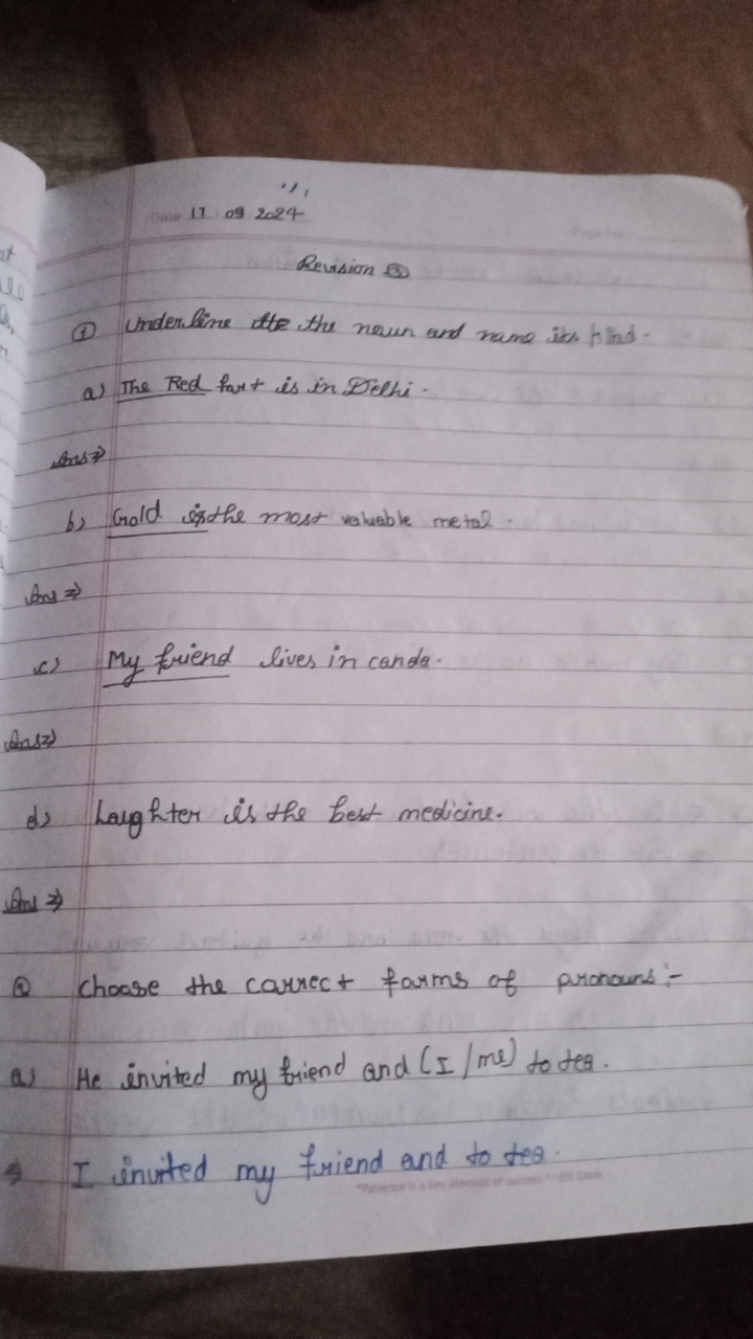 Date 17 09 2024
Revision
① Underline the the noun and name its kind.
a) The Red fort is in Delhi.
Ans⇒
b) Gold is the most valuable metal.
Ans⇒
c) My friend lives in canda.
Ans⇒
d) Laughter is the best medicine.
Ans⇒
② Choose the correct forms of pronouns:-
a) He invited my friend and (I/me) to tea.
⇒ I invited my friend and to tea.
"Patience is a key element of success." - Bill Gates